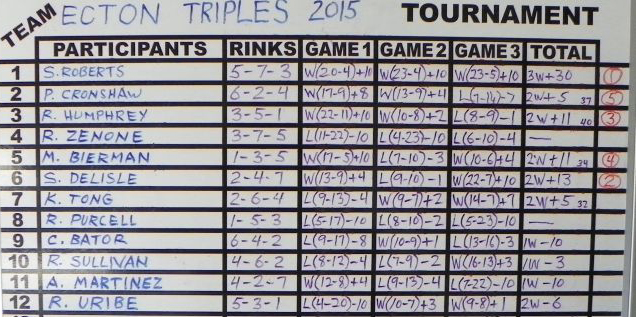 TEAM ECTON TRIPLES 2015 TOURNAMENT
PARTICIPANTS RINKS GAME 1 GAME 2 GAME 3 TOTAL
1 S. ROBERTS 5-7-3 W(20-4)+10 W(23-4)+10 W(23-5)+10 3W+30 1
2 P. CRONSHAW 6-2-4 W(17-9)+8 W(13-9)+4 L(7-14)-7 2W+5 37 5
3 R. HUMPHREY 3-5-1 W(22-11)+10 W(10-8)+2 L(8-9)-1 2W+11 40 3
4 R. ZENONE 3-7-5 L(11-22)-10 L(4-23)-10 L(6-10)-4 —
5 M. BIERMAN 1-3-5 W(17-5)+10 L(7-10)-3 W(10-6)+4 2W+11 34 4
6 S. DELISLE 2-4-7 W(13-9)+4 L(9-10)-1 W(22-7)+10 2W+13 2
7 K. TONG 2-6-4 L(9-13)-4 W(9-7)+2 W(14-7)+7 2W+5 32
8 R. PURCELL 1-5-3 L(5-17)-10 L(8-10)-2 L(5-23)-10 —
9 C. BATOR 6-4-2 L(9-17)-8 W(10-9)+1 L(13-16)-3 1W-10
10 R. SULLIVAN 4-6-2 L(8-12)-4 L(7-9)-2 W(16-13)+3 1W-3
11 A. MARTINEZ 4-2-7 W(12-8)+4 L(9-13)-4 L(7-22)-10 1W-10
12 R. URIBE 5-3-1 L(4-20)-10 W(10-7)+3 W(9-8)+1 2W-6